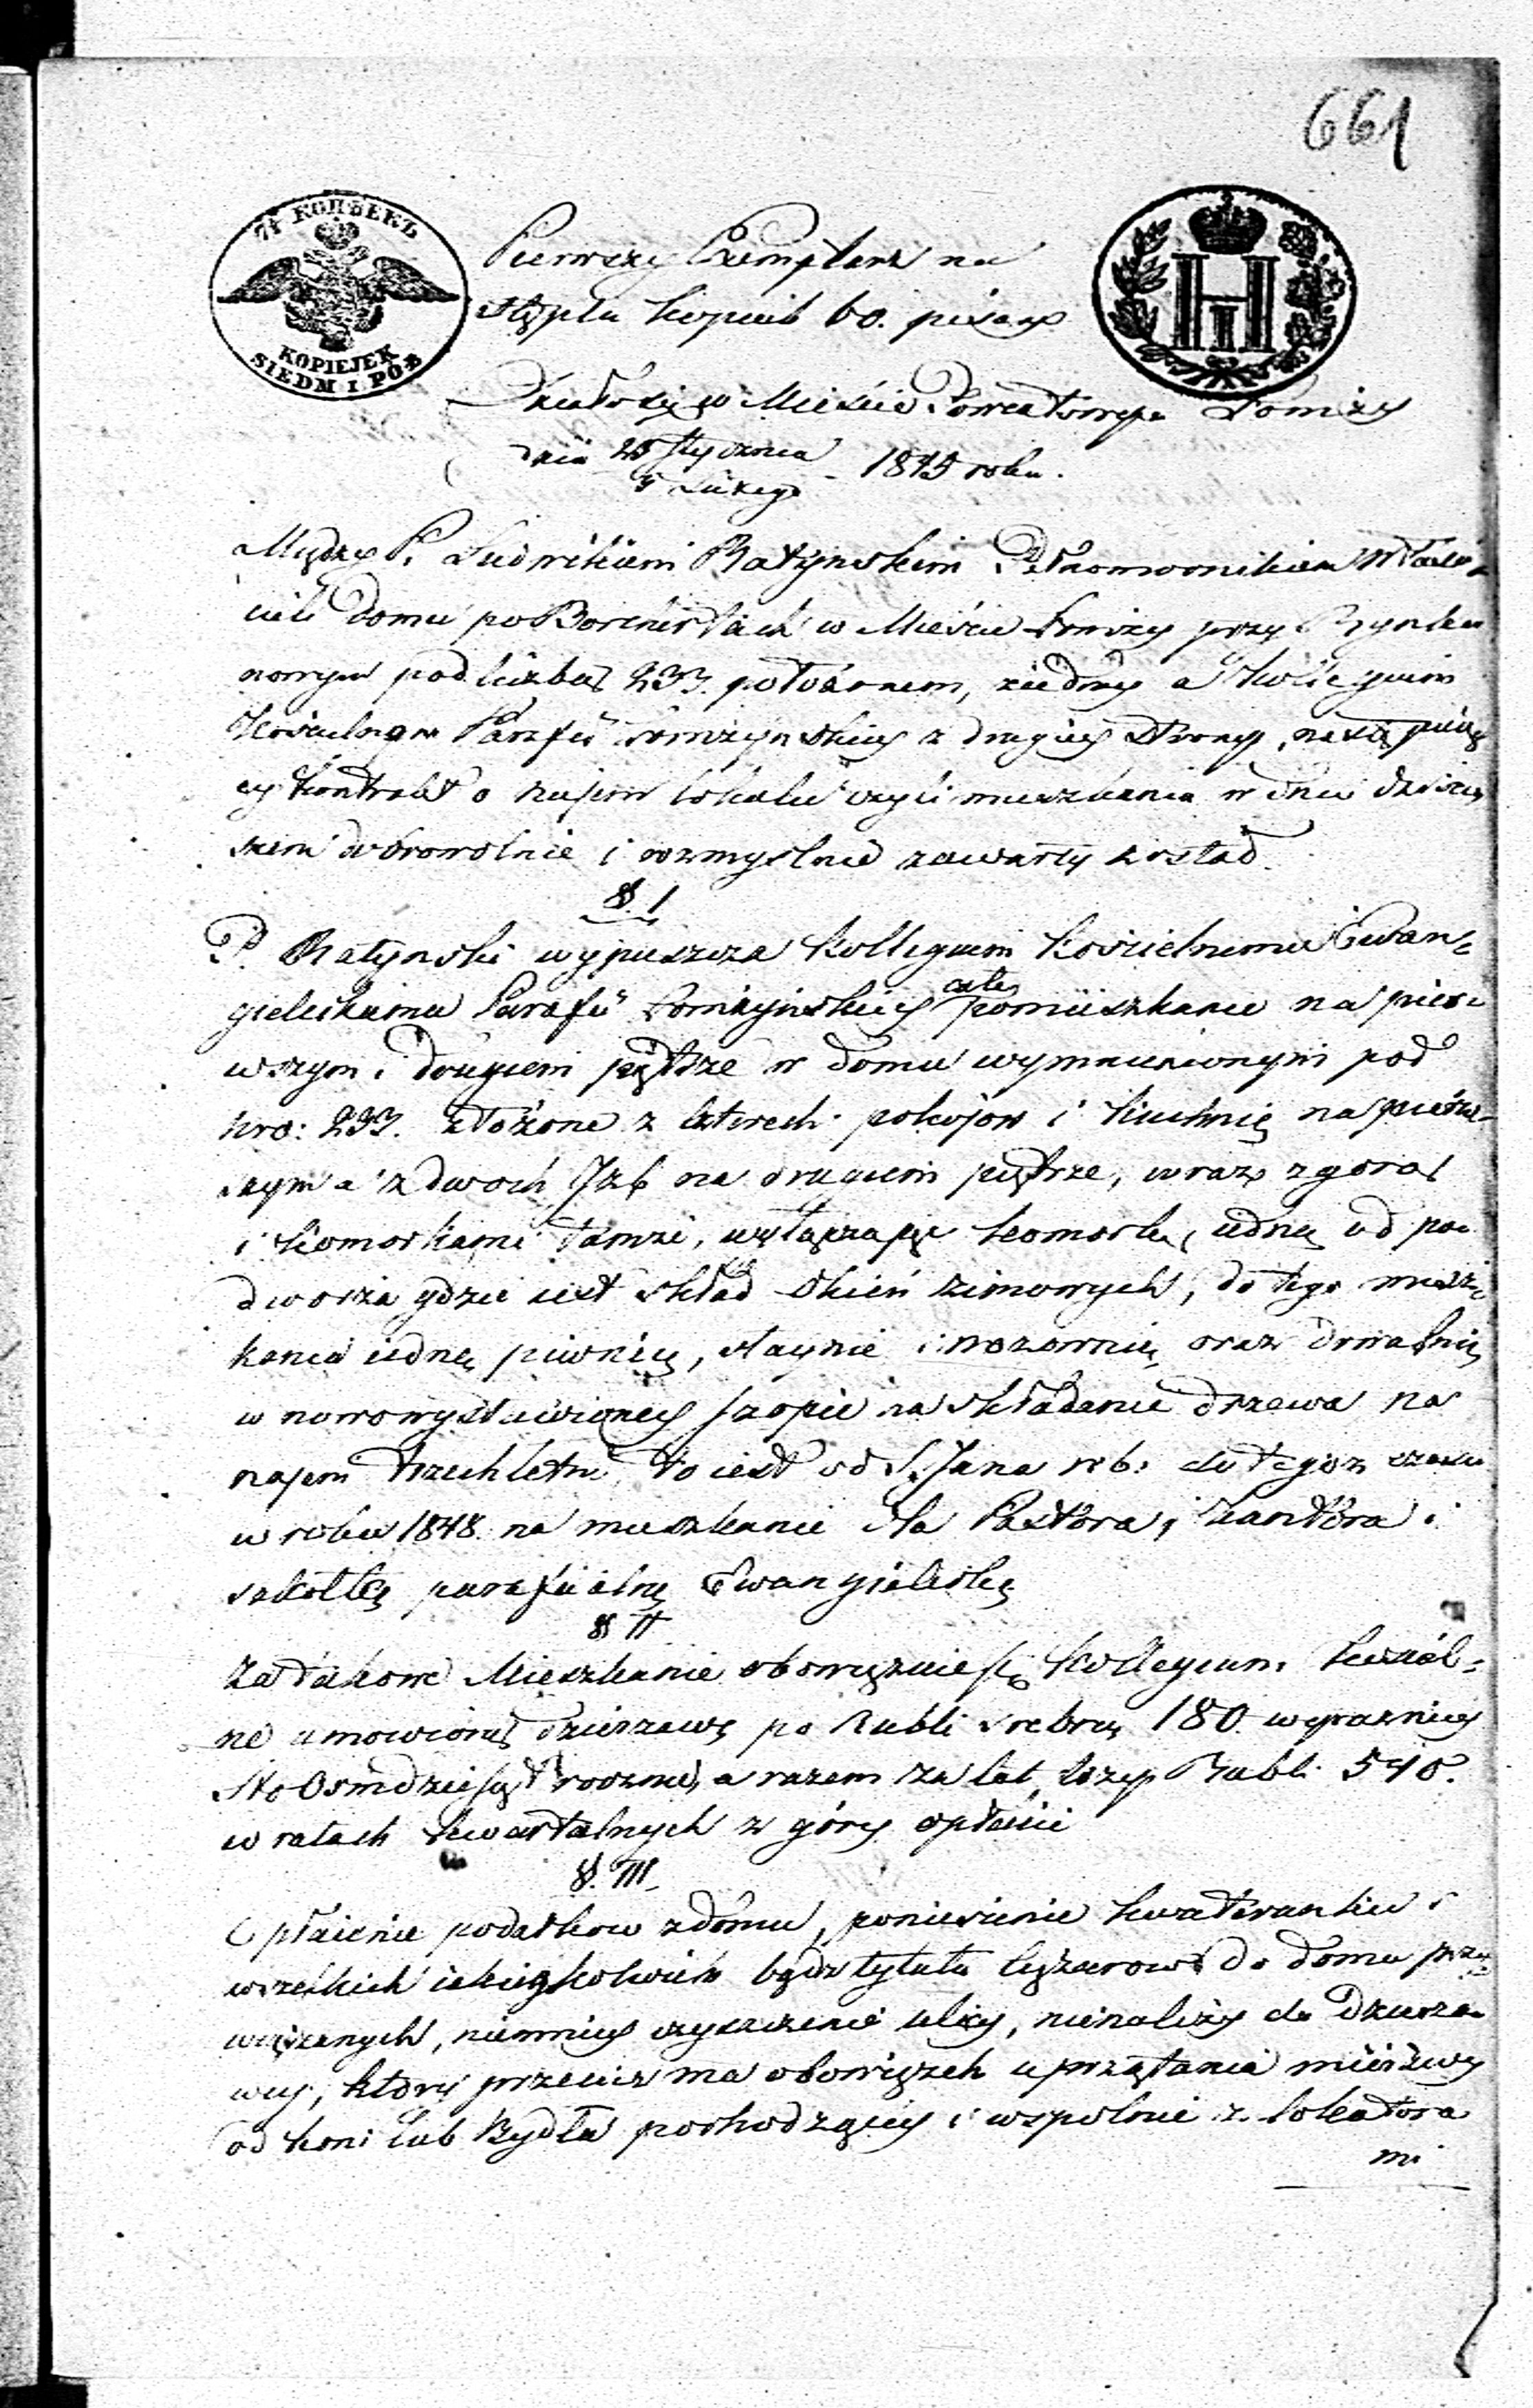 661
7½ КОПѢЕКЪ
KOPIEJEK
SIEDM I PÓŁ
Pierwszy Exemplarz na
stęplu kopieik 60. pisany
Działo się w Mieście Powiatowym Łomży
dnia 23 Stycznia
4 Lutego - 1845 roku.
Między P. Ludwikiem Ratyńskim Pełnomocnikiem Właści-
cieli Domu po w Mieście Łomży przy Rynku
nowym pod liczbą 233. położonem, z iedney a Kollegium
Kościelnym Parafii Łomżyńskiey z drugiey strony, następuią
cy kontrakt o najem lokalu czyli mieszkania w dniu dzisiey
szem dobrowolnie i rozmyślnie zawarty został.
§. I
P. Ratyński wypuszcza Kollegium Kościelnemu Ewan-
gielickiemu Parafii Łomżyńskiey całe pomieszkanie na pier-
wszym i drugiem piętrze w domu wymienionym pod
Nro: 233. złożone z czterech pokojow i kuchnię na pierw-
szym a z dwoch Izb na drugiem piętrze, wraz z gorą
i komorkami tamże, wyłączając komorkę iedną od po-
dworza gdzie iest skład okień zimowych, do tego miesz-
kania iedną piwnicę, staynie i wozownię oraz drwalnię
w nowowystawioney szopie na składanie drzewa na
najem trzechletni to iest od S. Jana r b: do tegoż czasu
w roku 1848. na mieszkanie dla Pastora, Kantora i
szkołkę parafialną Ewangielicką
§ II
Za takowe Mieszkanie obowiązuie się Kollegium Kościel-
ne umowioną dzierzawę po Rubli srebrą 180. wyraznicy
Sto Osmdziesiąt rocznie, a razem za lat trzy Rubli 540.
w ratach kwartalnych z góry opłacić
§. III.
Opłacenie podatkow z domu, poniesienie kwaterunku i
wszelkich iakichkolwiek bądz tytułu ciężarow do domu przy
wiązanych, niemniey czyszczenie ulicy, nienależy do Dzierza-
wcy, który przecież ma obowiązek uprzątania mierzwy
od koni lub Bydła pochodzącey i wspolnie z lokatora
mi